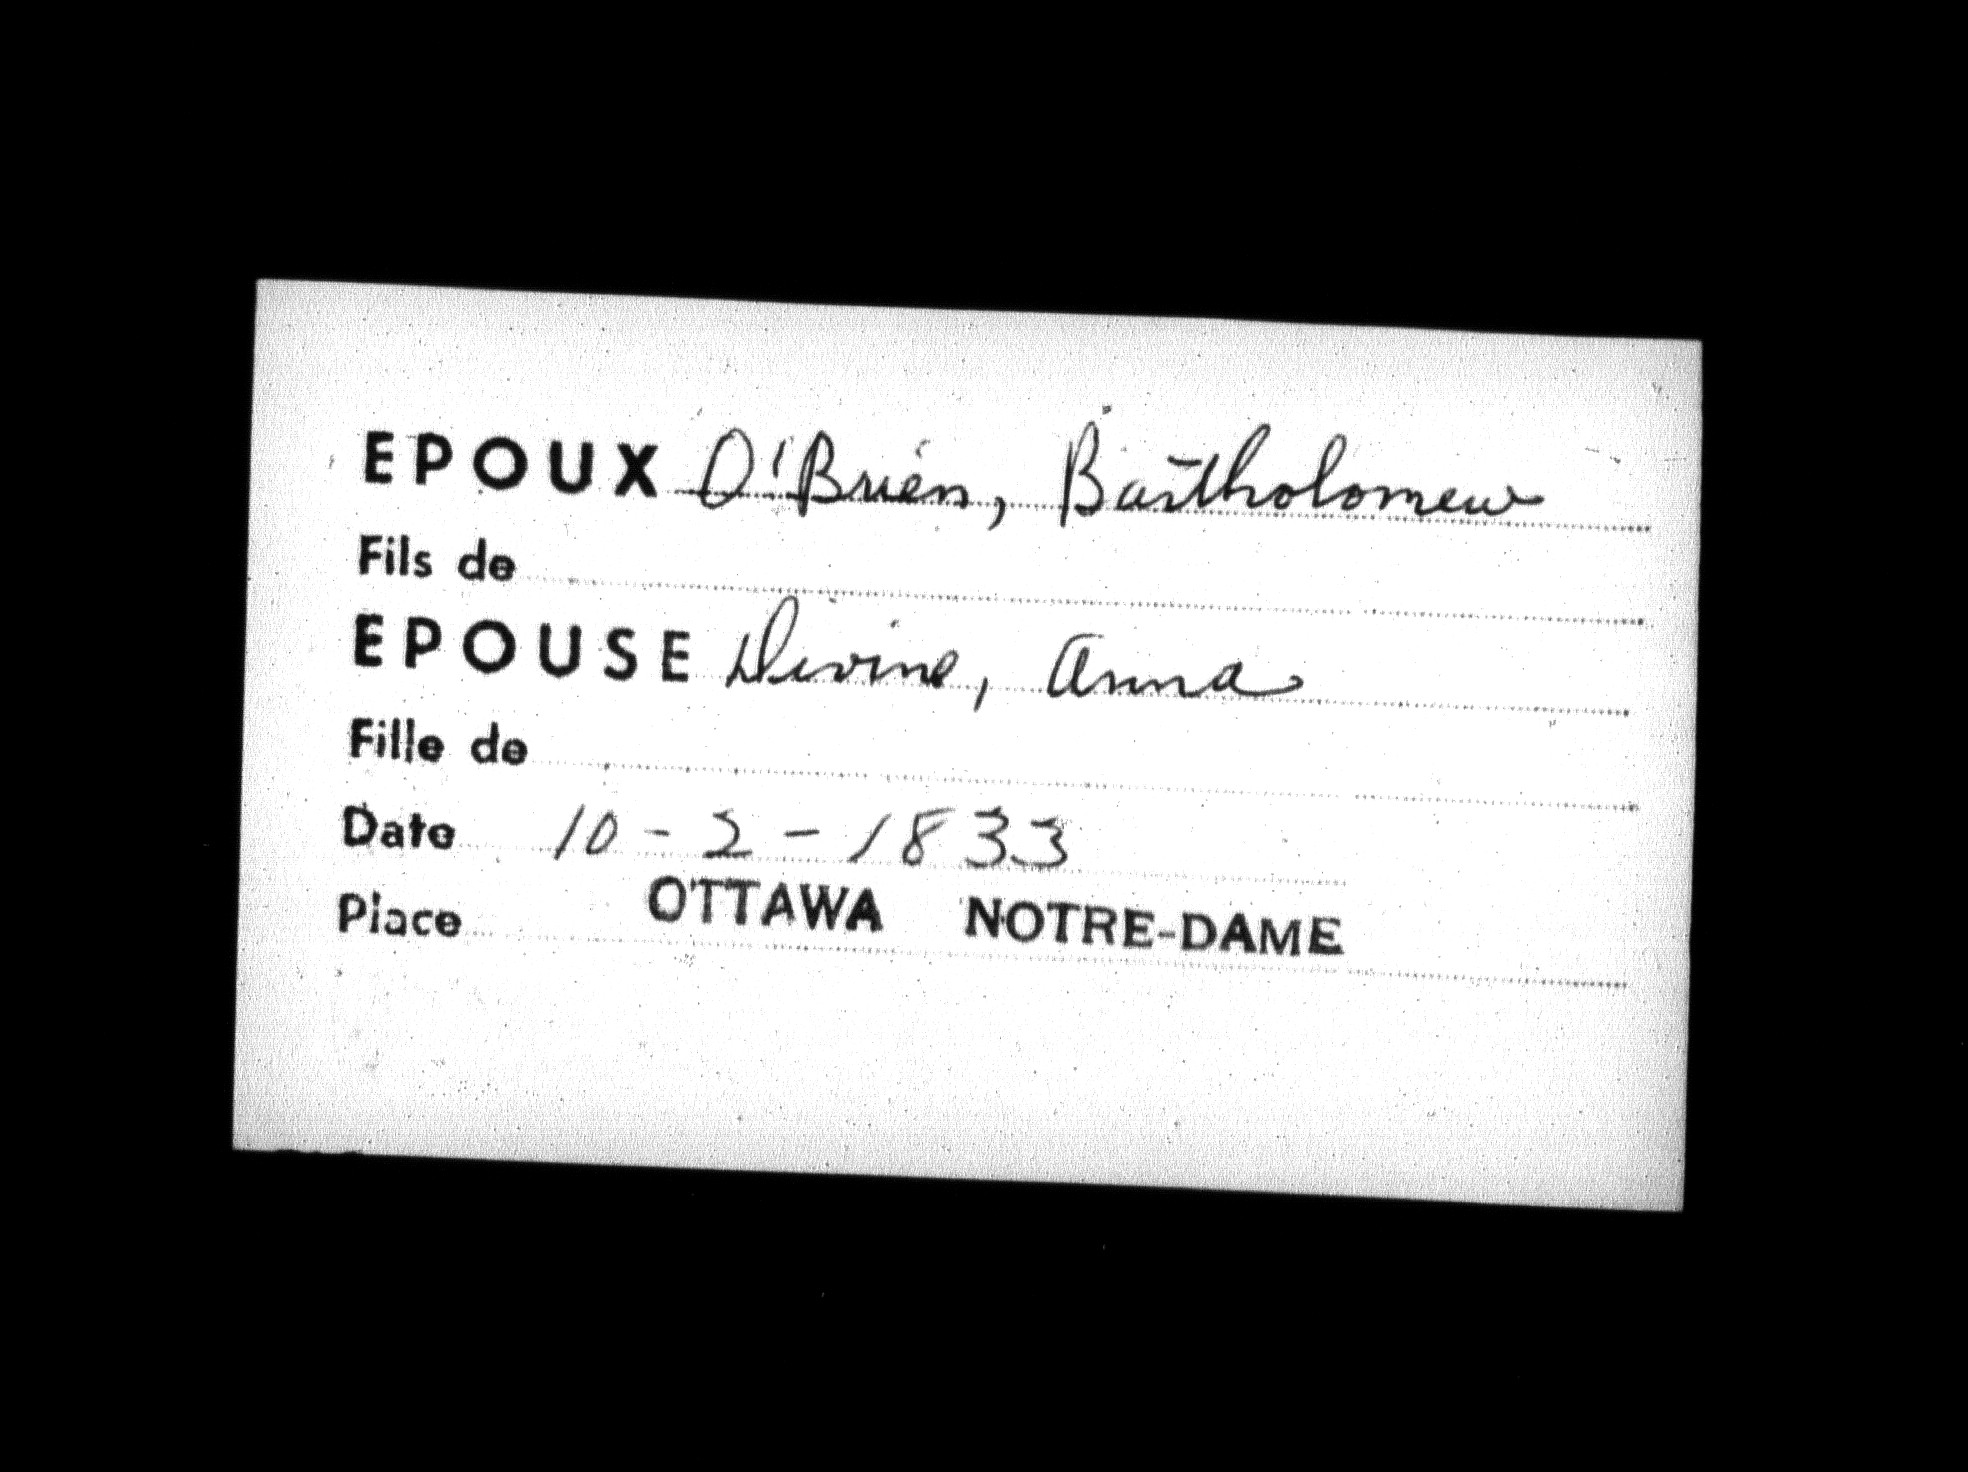 EPOUX O'Brien, Bartholomew
Fils de
EPOUSE Divine, Anna
Fille de
Date 10 - 2 - 1833
Place OTTAWA NOTRE-DAME